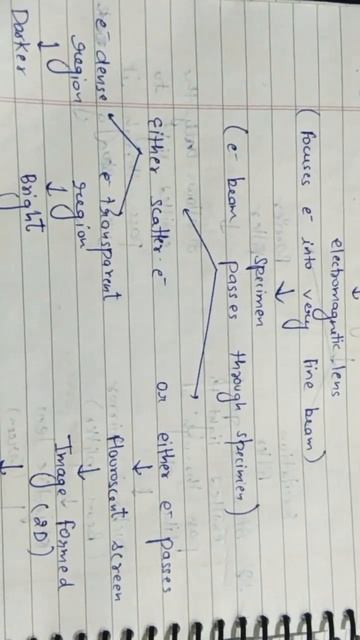 electromagnetic lens
(Focuses e⁻ into very fine beam)
↓
Specimen
(e⁻ beam passes through specimen)
Either scatter e⁻ or either e⁻ passes
↓
e⁻ dense region
↓
Darker
e⁻ transparent region
↓
Bright
fluoroscent screen
↓
Image formed (2D)
↓